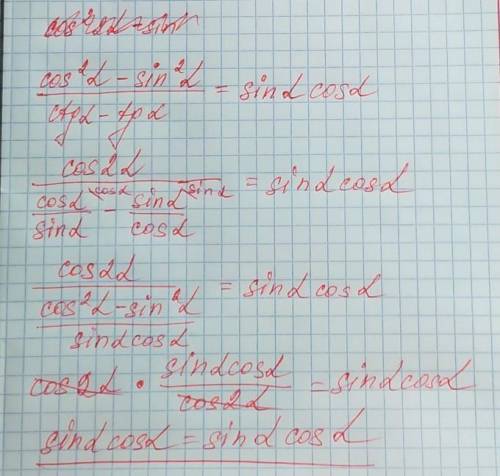 cos²2α - sin
cos²α - sin²α / ctgα - tgα = sinα cosα
cos2α / (cosα^cosα / sinα - sinα^sinα / cosα) = sinα cosα
cos2α / (cos²α - sin²α / sinα cosα) = sinα cosα
cos2α · sinα cosα / cos2α = sinα cosα
sinα cosα = sinα cosα